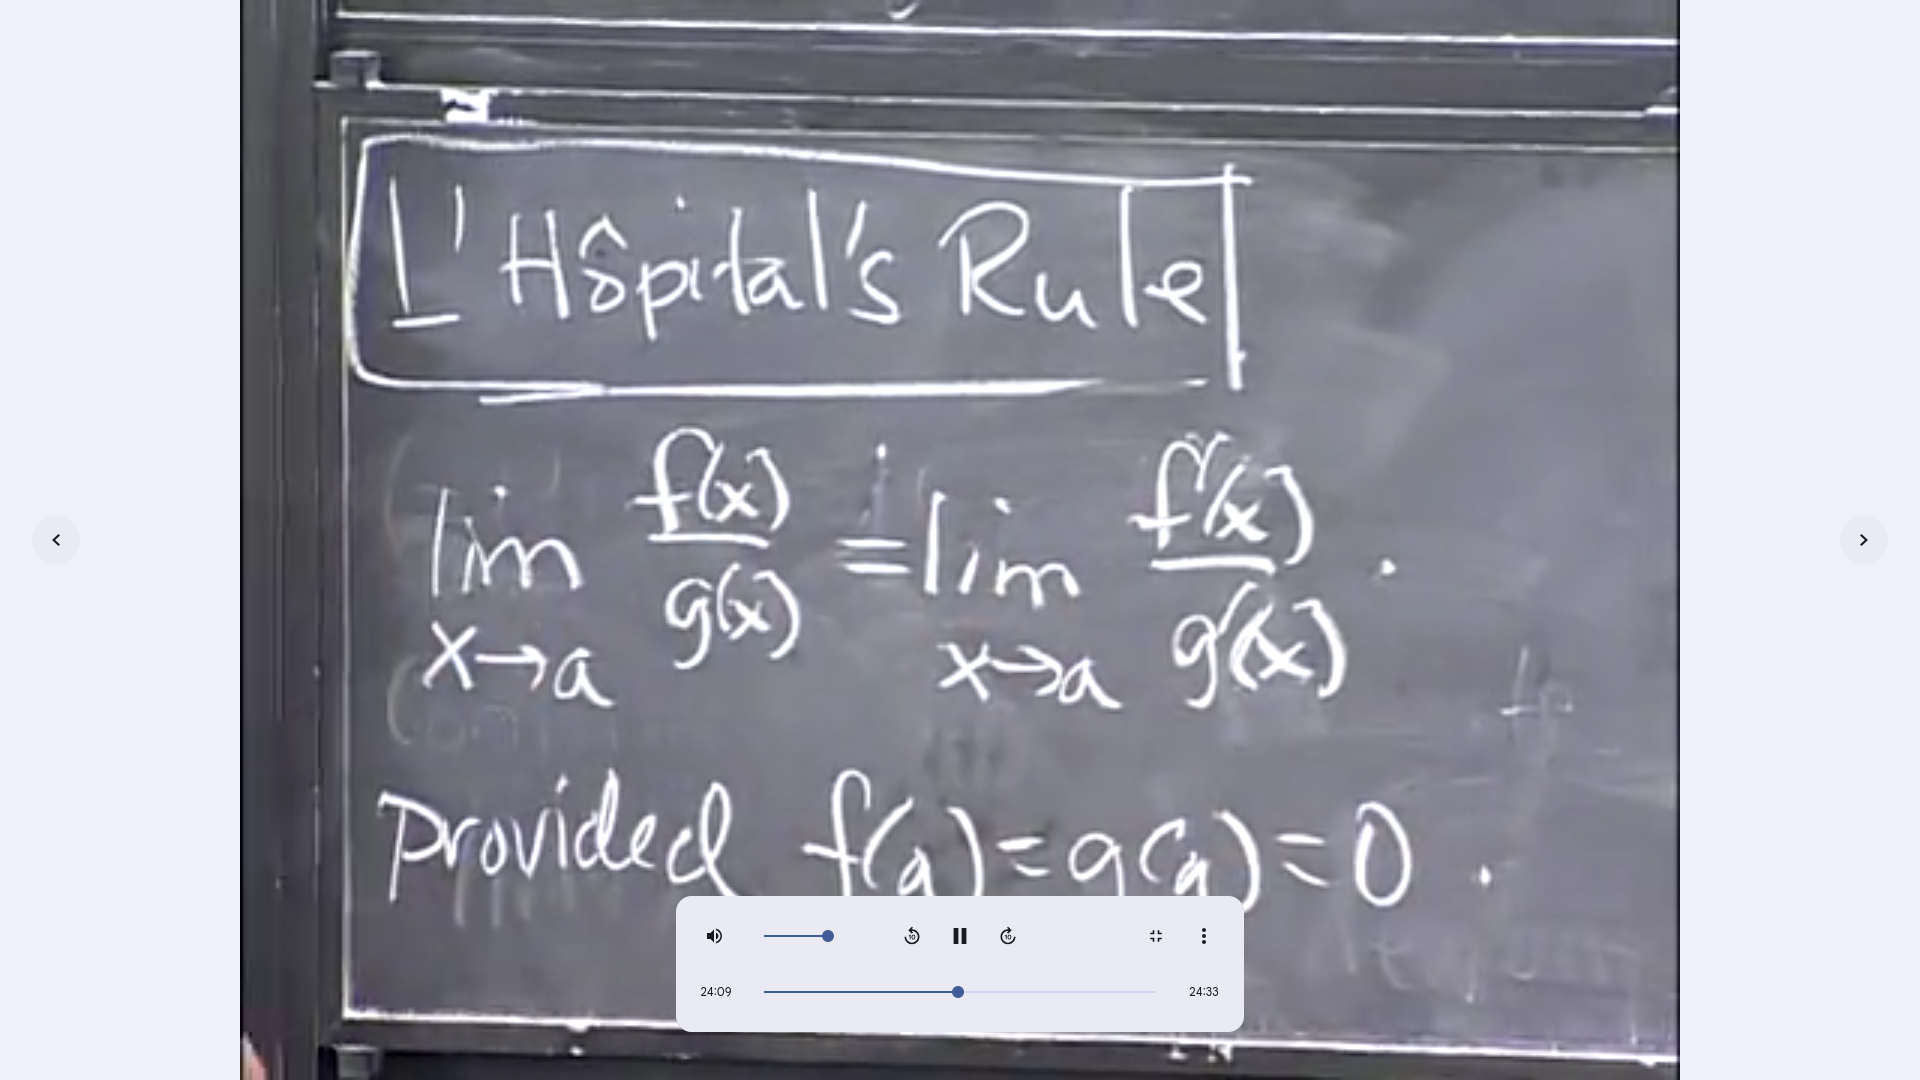 L'Hôpital's Rule
lim x→a f(x)/g(x) = lim x→a f'(x)/g'(x) .
Provided f(a) = g(a) = 0 .
10 10
24:09 24:33